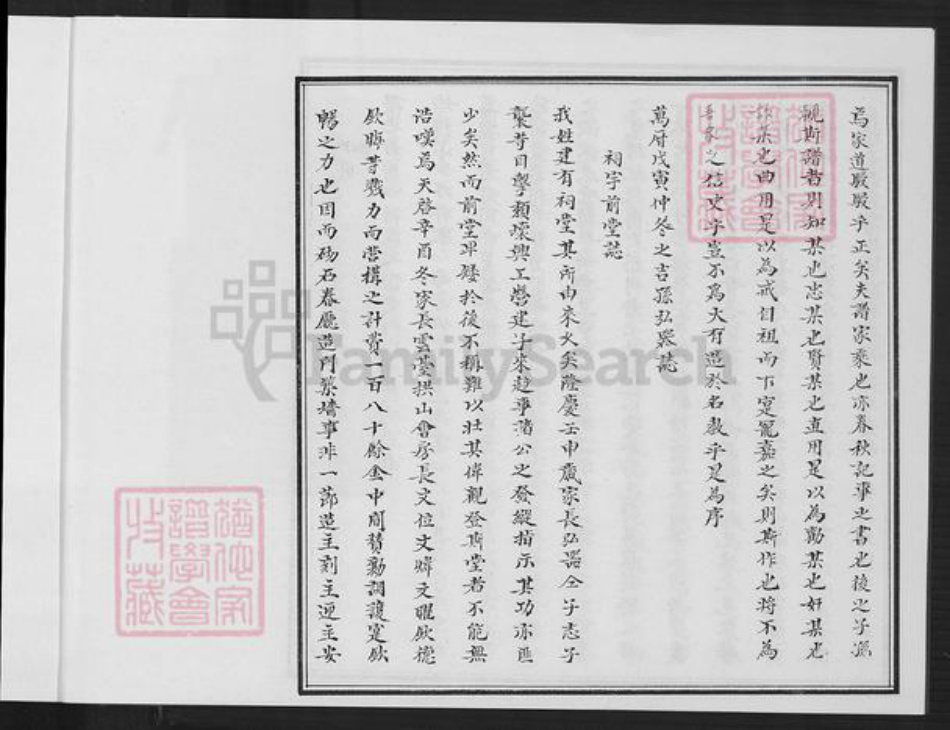 焉家道殷殷乎正矣夫譜家乘也亦春秋記事之書也後之子孫
觀斯譜者則知某也忠某也賢某也直用是以為勸某也奸某也
詐某也曲用是以為戒自祖而下寔冕嘉之矣則斯作也將不為
吾家之信史乎豈不為大有造於名教乎是為序
萬曆戊寅仲冬之吉孫弘器誌
祠宇前堂誌
我姓建有祠堂其所由來久矣隆慶壬申歲家長弘器仝子志子
襲等目擊頹壞興工營建子來趍事諸公之發縱指示其功亦匪
少矣然而前堂卑矮於後不稱難以壯其偉觀登斯堂者不能無
浩嘆焉天啓辛酉冬家長雲臺拱山會房長文位文暐文曜欽德
欽晦等戮力而營構之計費一百八十餘金中間贊勷調護寔欽
暢之力也因而砌石春廳造門築墻事非一節造主刻主迎主安
FamilySearch
猶他家譜學會收藏
猶他家譜學會收藏